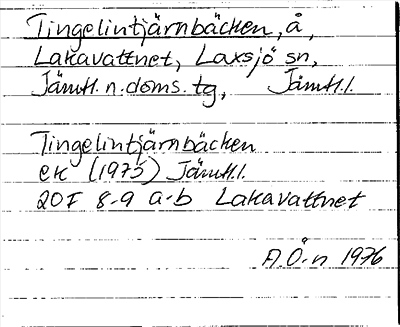 Tingelintjärnbäcken, å,
Lakavattnet, Laxsjö sn,
Jämtl. n. doms. tg, Jämtl. l.
Tingelintjärnbäcken
ek (1975) Jämtl. l.
20F 8-9 a-b Lakavattnet
A.Ö-n 1976